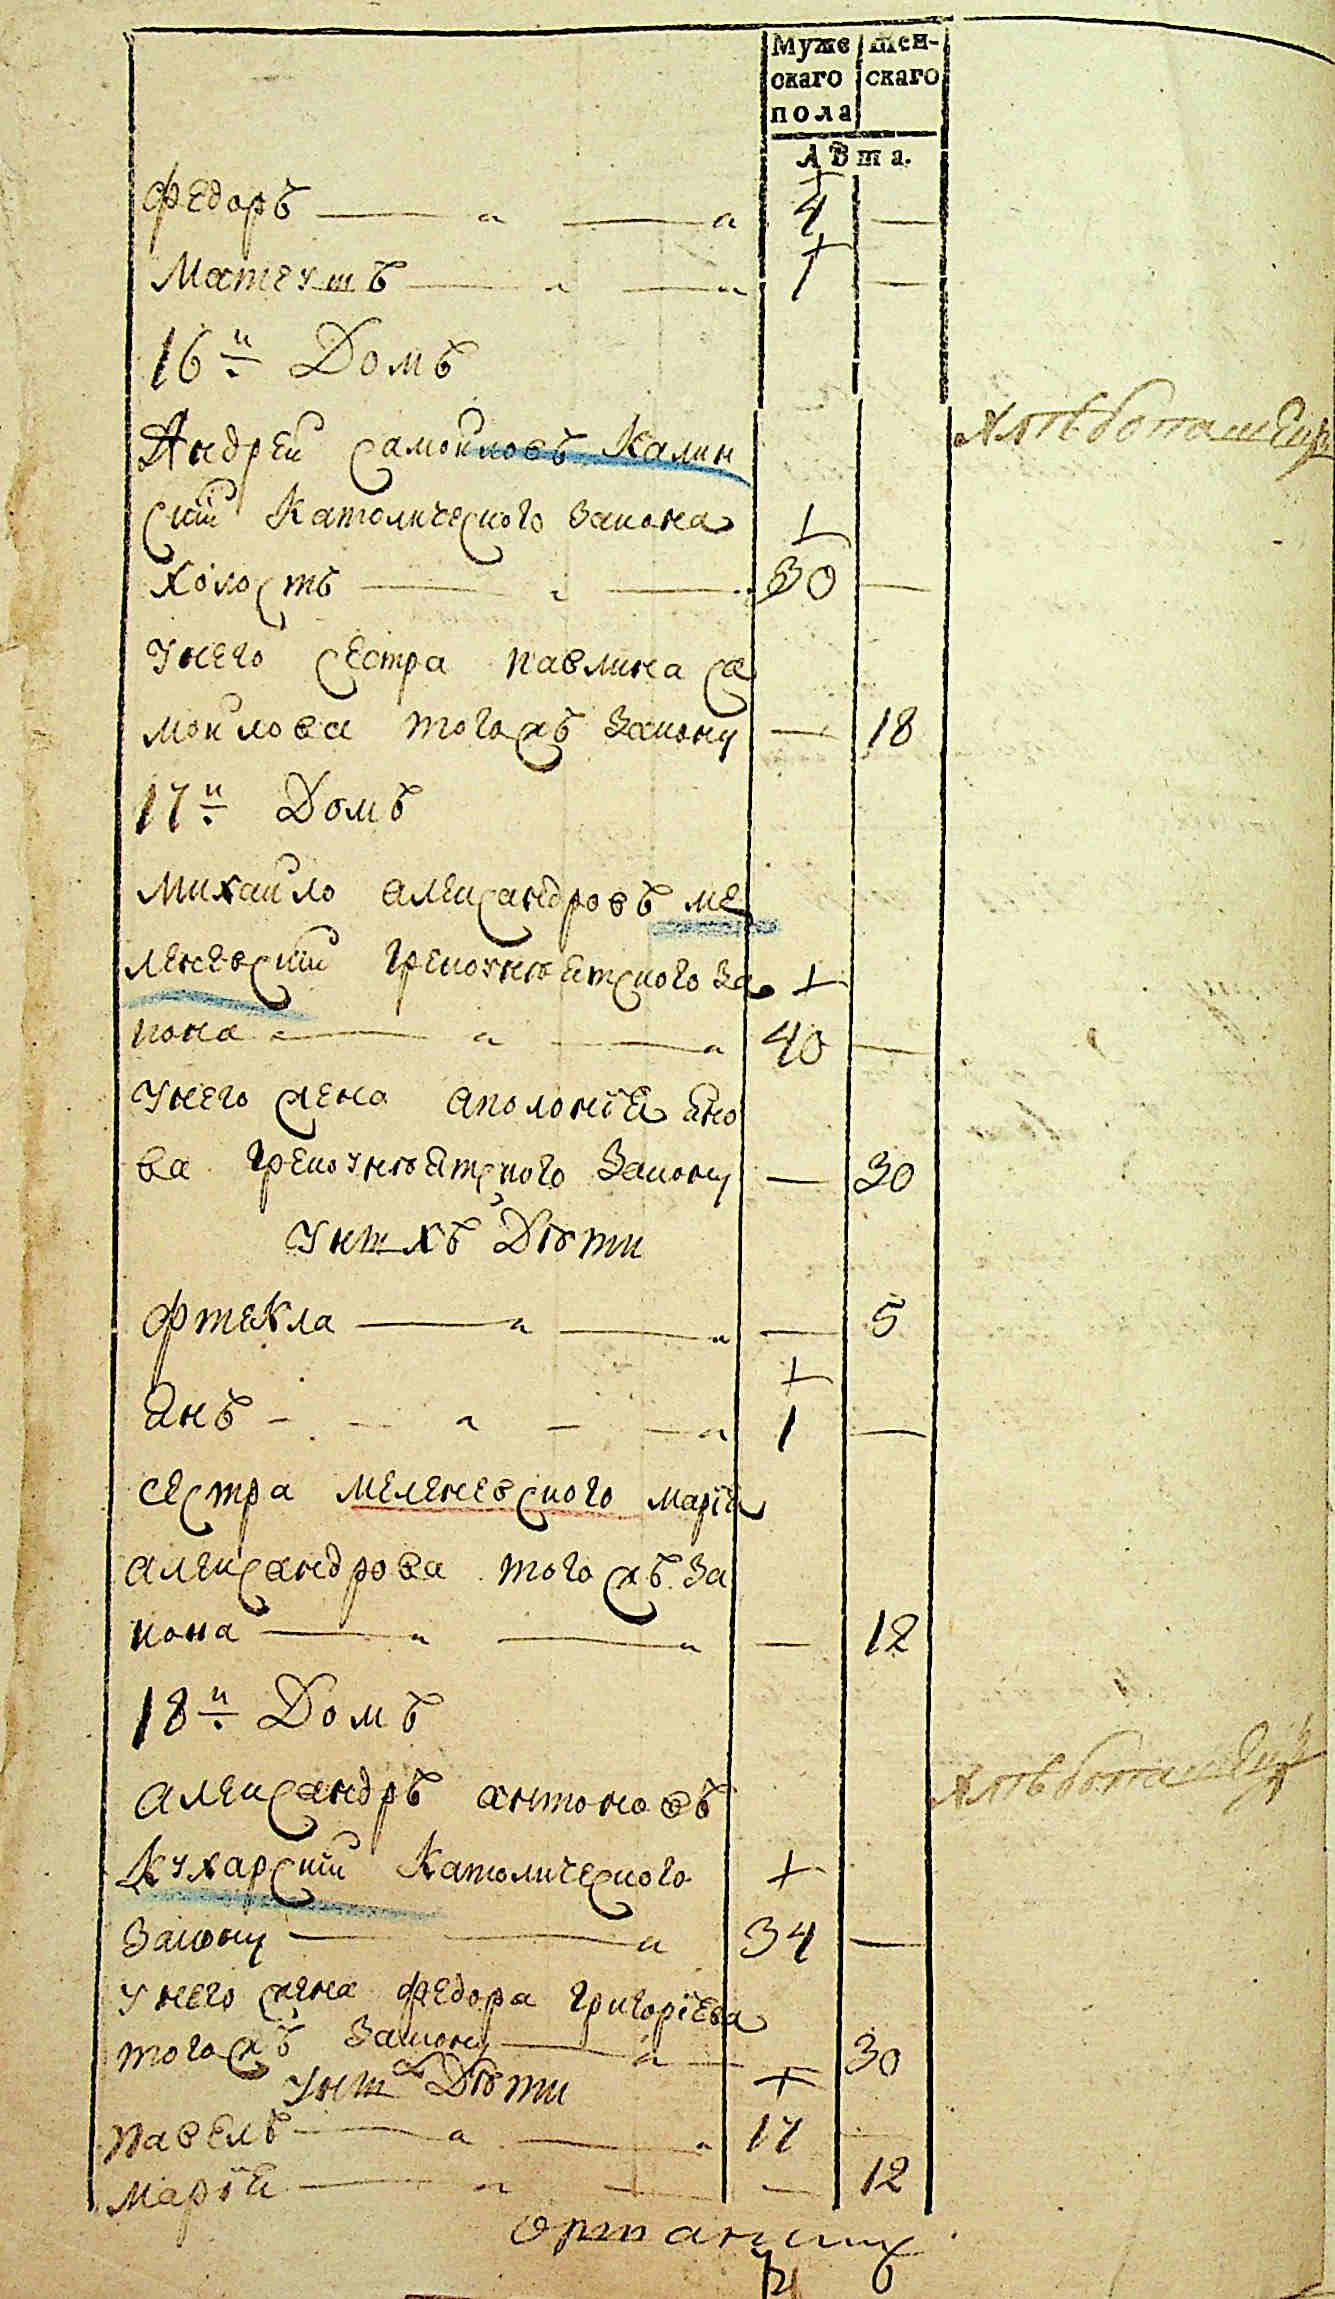 Муже скаго пола
Жен- скаго
Лѣта.
Федоръ 4 —
Матеушъ 1 —
16й Домъ
Андрей Самойловъ Калин
скій Католического закона
холостъ 30 —
Унего сестра Павлина Са
мойлова тогожъ закону — 18
17й Домъ
Михайло Александровъ Ме
леневскій грекоунѣятского за
кона 40 —
Унего жена Аполонія Яно
ва грекоунѣятского закону — 30
Унихъ Дѣти
Фтекла — 5
Янъ 1 —
сестра Меленевского Марія
Александрова тогожъ за
кона — 12
18й Домъ
Александръ Антоновъ
Кухарскій Католического
закону 34 —
Унего жена Федора Григоріева
тогожъ закону 30
Уних Дѣти
Павелъ 17 —
Марія — 12